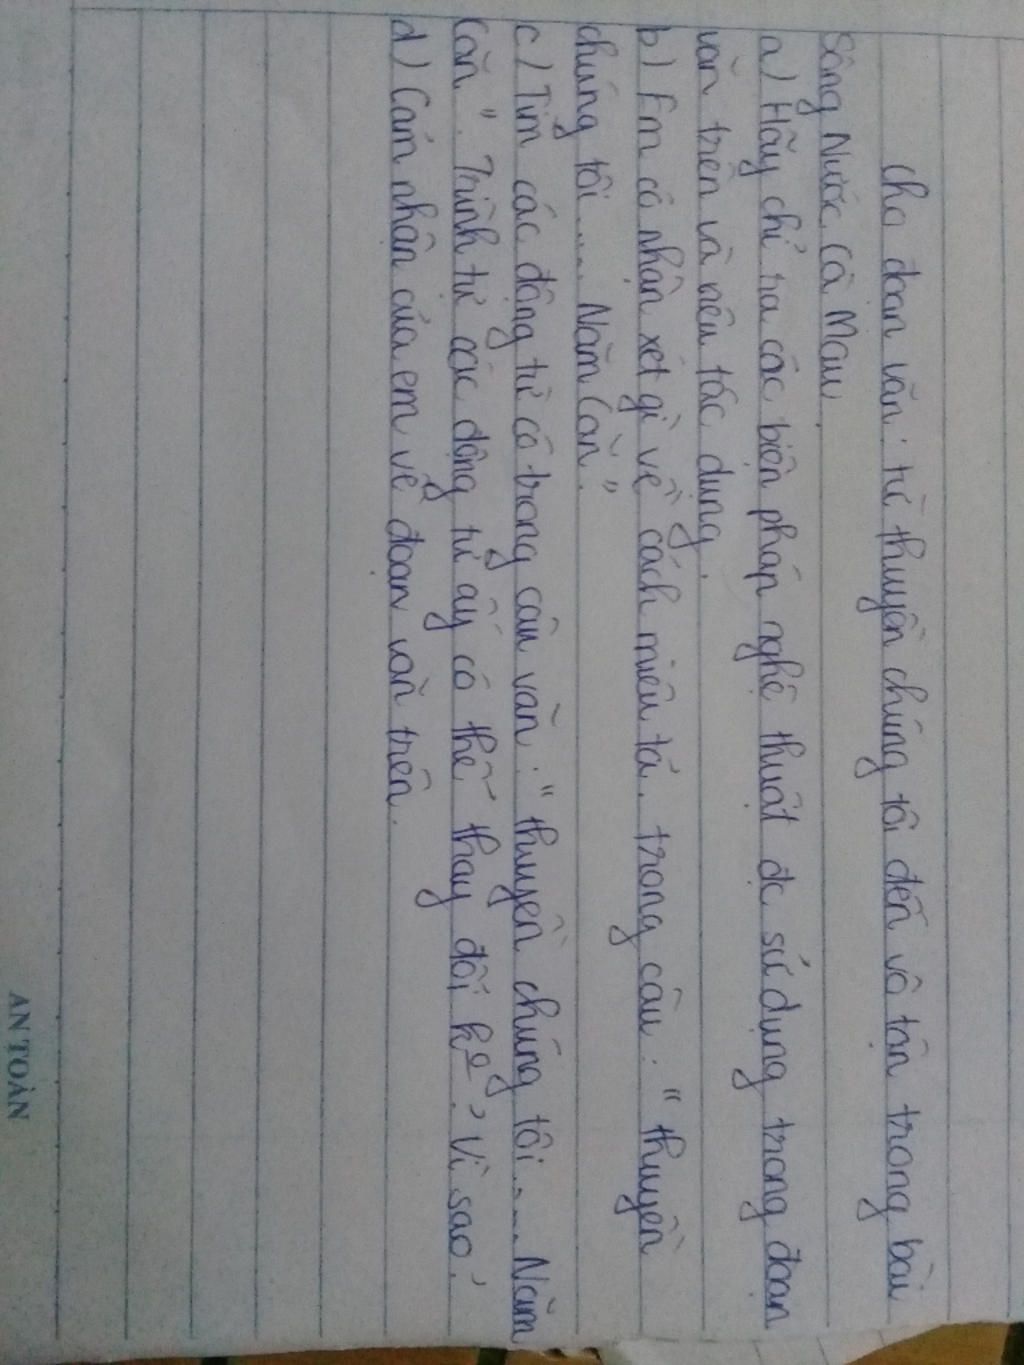 cho đoạn văn: từ thuyền chúng tôi đến vô tận trong bài
Sông Nước Cà Mau.
a) Hãy chỉ ra các biện pháp nghệ thuật đc sử dụng trong đoạn
văn trên và nêu tác dụng.
b) Em có nhận xét gì về cách miêu tả. trong câu: " thuyền
chúng tôi.... Năm Căn."
c) Tìm các động từ có trong câu văn: " thuyền chúng tôi.... Năm
Căn". Trình tự các động từ ấy có thể thay đổi ko? Vì sao?
d) Cảm nhận của em về đoạn văn trên.
AN TOÀN